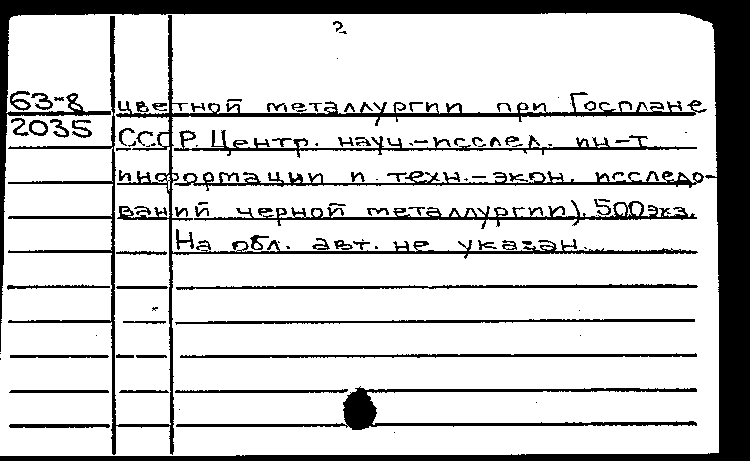 2
63-8 цветной металлургии при Госплане
2035 СССР. Центр. науч.-исслед. ин-т
информации и техн.-экон. исследо-
ваний черной металлургии). 500 экз.
На обл. авт. не указан.